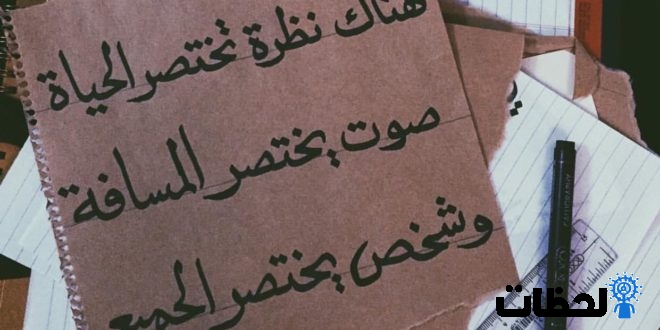 هناك نظرة تختصر الحياة
صوت يختصر المسافة
وشخص يختصر الجميع
لحظات